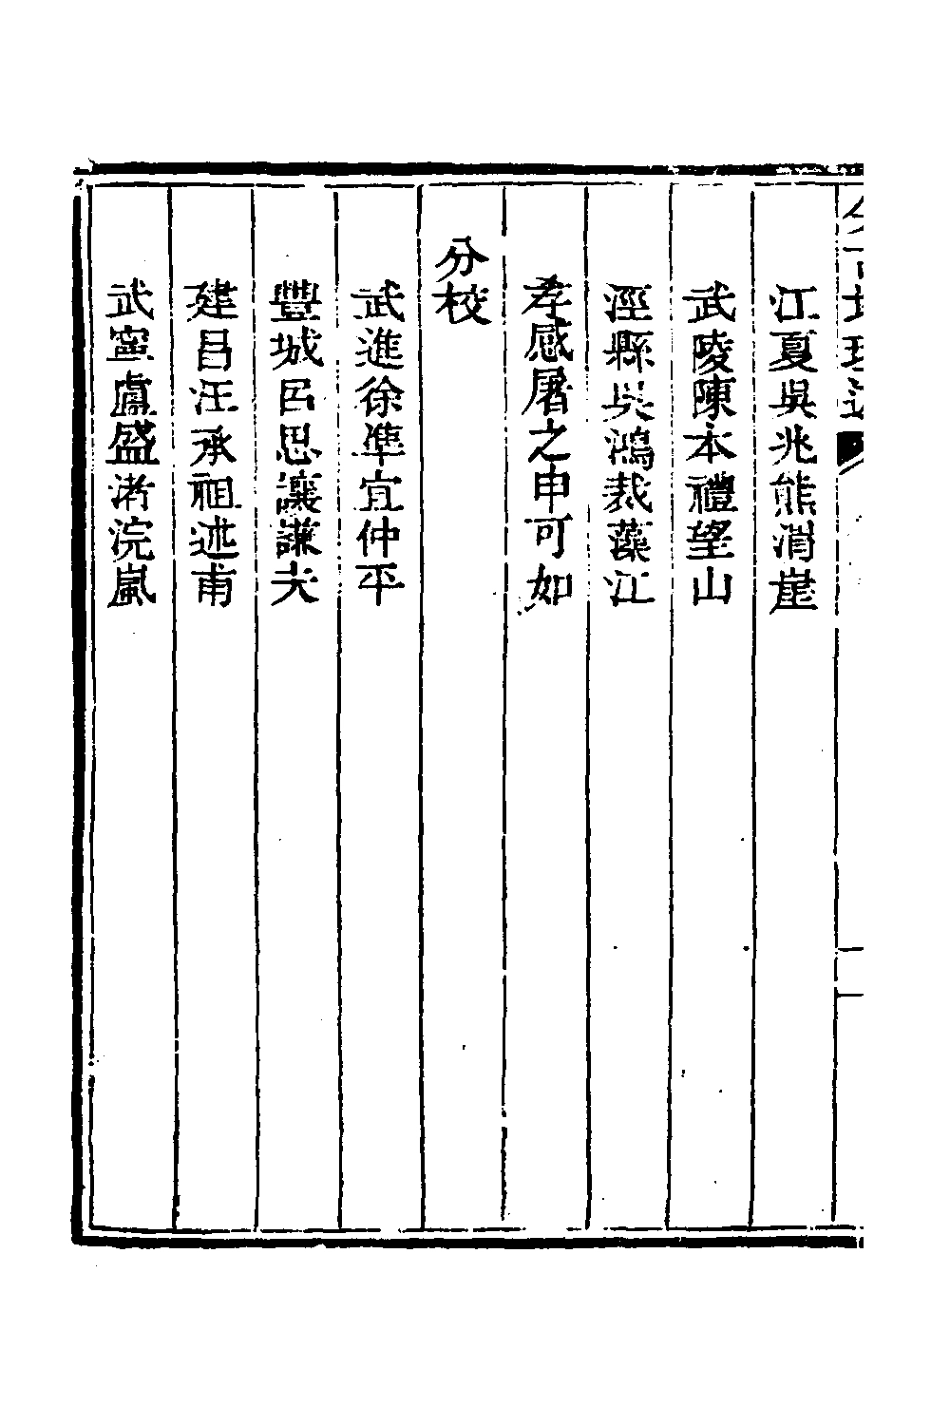 江夏吳兆熊渭崖
武陵陳本禮望山
涇縣吳鴻裁藻江
孝感屠之申可如
分校
武進徐準宜仲平
豐城呂思讓謙夫
建昌汪承祖述甫
武寧盧盛渚浣嵐